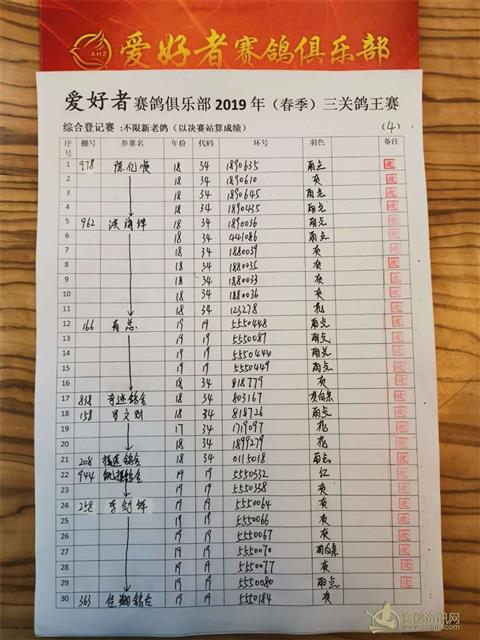 爱好者赛鸽俱乐部
AHZ
爱好者赛鸽俱乐部2019年（春季）三关鸽王赛
综合登记赛：不限新老鸽（以决赛站算成绩） （4）
序号 棚号 参赛名 年份 代码 环号 羽色 备注
1 978 18 34 1890635 雨点
2 18 34 1890610 灰
3 18 34 1890645 雨点
4 18 34 1890435 雨点
5 962 18 34 1890036 雨点
6 18 34 441086 雨点
7 18 34 1880039 灰
8 18 34 1880035 灰
9 18 34 1880033 灰
10 18 34 1880036 灰
11 18 34 123278 花
12 166 19 19 5550448 雨点
13 19 19 5550087 雨点
14 19 19 5550444 雨点
15 19 19 5550449 雨点
16 18 34 818779 灰
17 838 奇迹鸽舍 18 34 803167 灰白条
18 158 18 34 818726 雨点
19 17 34 1719097 花
20 18 34 1899279 花
21 208 鸽舍 18 34 0115018 雨点
22 944 鸽舍 19 19 5550332 红
23 19 19 5550338 灰
24 258 李剑锋 19 19 5550064 灰
25 19 19 5550066 灰
26 19 19 5550067 灰
27 19 19 5550070 雨白条
28 19 19 5550077 灰
29 19 19 5550080 雨点
30 363 佳翔鸽舍 19 19 5550184 灰